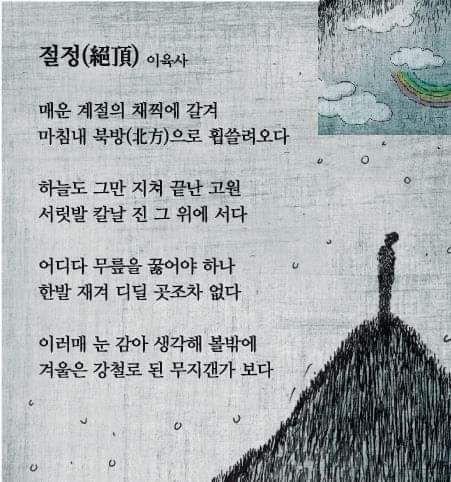 절정(絕頂) 이육사
매운 계절의 채찍에 갈겨
마침내 북방(北方)으로 휩쓸려오다
하늘도 그만 지쳐 끝난 고원
서릿발 칼날 진 그 위에 서다
어디다 무릎을 꿇어야 하나
한발 재겨 디딜 곳조차 없다
이러매 눈 감아 생각해 볼밖에
겨울은 강철로 된 무지갠가 보다